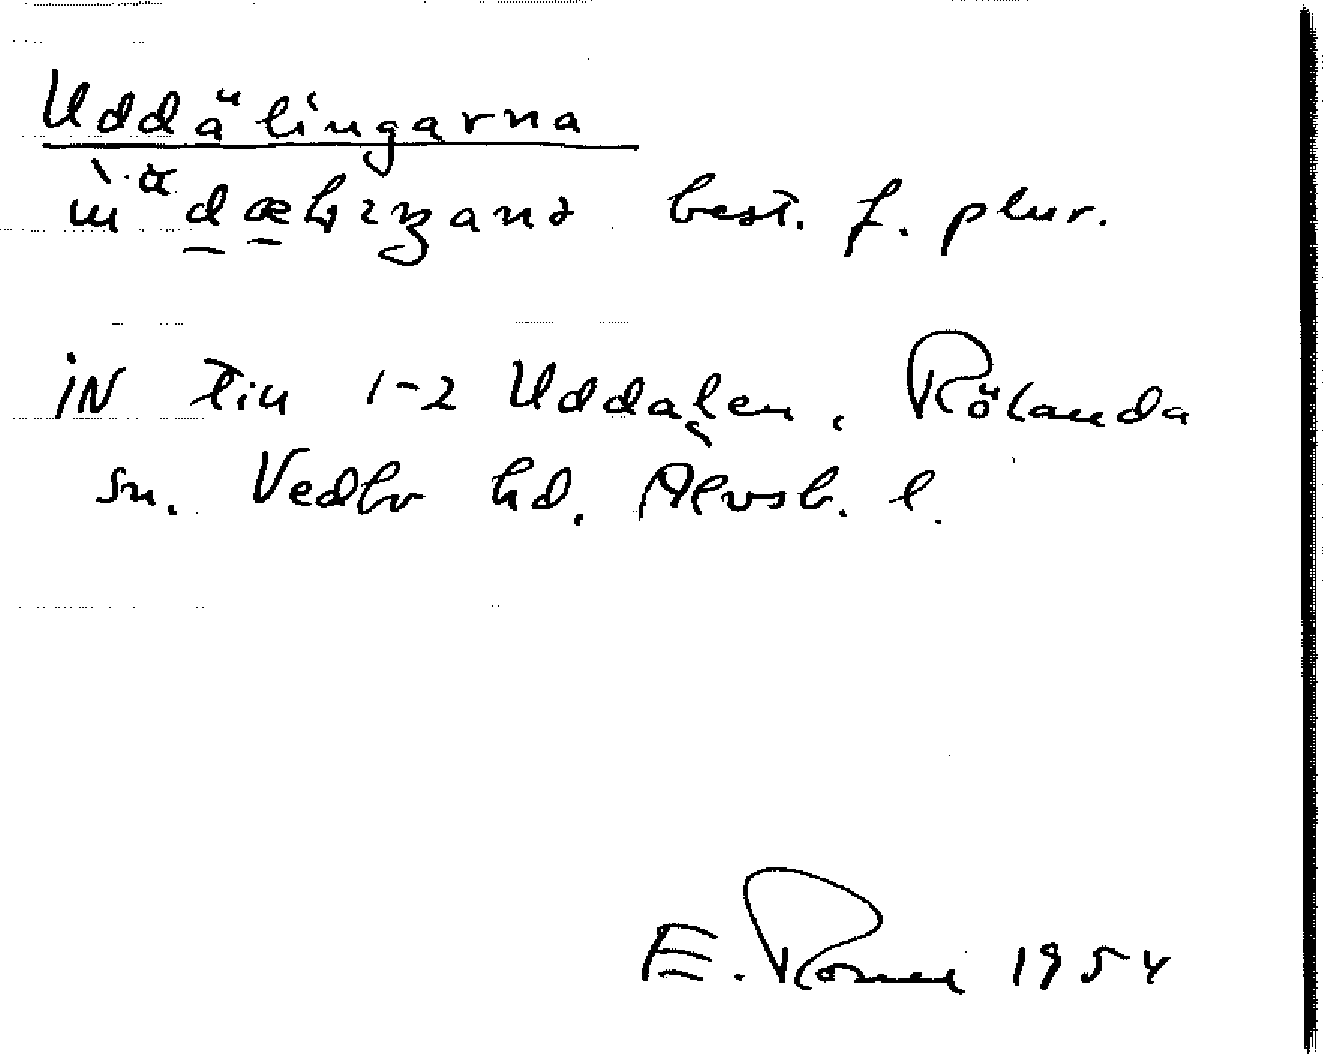 Uddälingarna
best. f. plur.
iN till 1-2 Uddalen, Rölanda
sn. Vedbo hd. Älvsb. l.
E. 1954